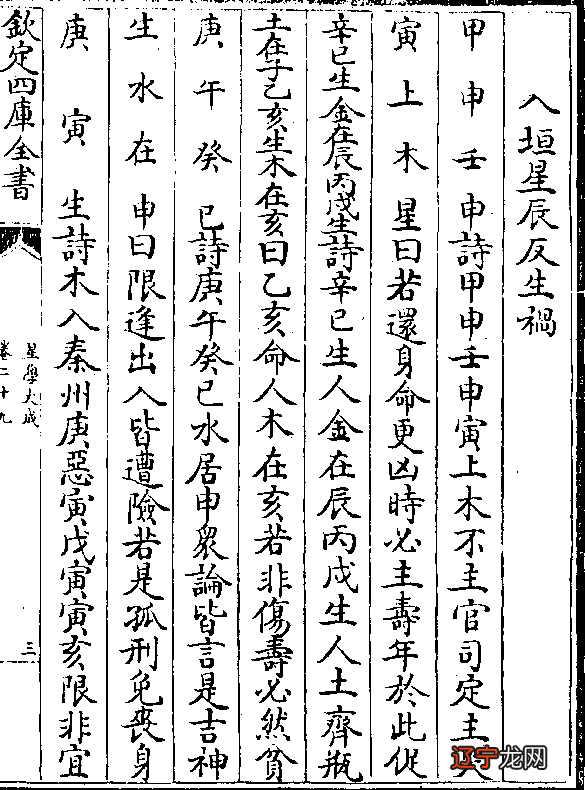 入垣星辰反生禍
甲申壬申詩甲申壬申寅上木不主官司定主
寅上木星曰若還身命更凶時必主壽年於此促
辛巳生金在辰丙戌生詩辛巳生人金在辰丙戌生人土齊瓶
土在子乙亥生木在亥曰乙亥命人木在亥若非傷壽必然貧
庚午癸巳詩庚午癸巳水居申衆論皆言是吉神
生水在申曰限逢出入皆遭險若是孤刑免喪身
庚寅生詩木入秦州庚惡寅戊寅寅亥限非宜
欽定四庫全書
星學大成
卷二十九
三
辽宁龙网